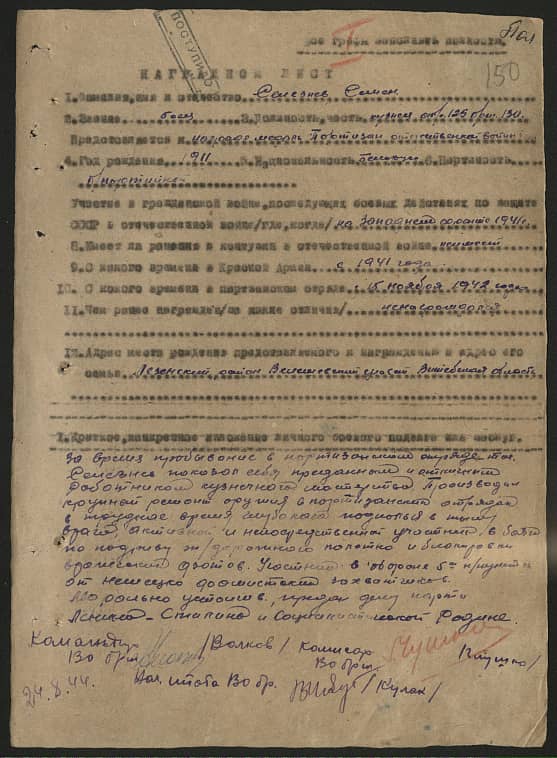 Все графы заполнять полностью.
ПОСТУПИЛО
I
150
НАГРАДНОЙ ЛИСТ
1.Фамилия,имя и отчество Селезнев Семен
2.Звание боец 3.Должность,часть кузнец отр. 125 бриг. 130.
Представляется к награде медаль Партизан отечественной войны
4.Год рождения 1911 5.Национальность 6.Партийность
б/партийный
Участие в гражданской войне,последующих боевых действиях по защите
СССР и отечественной войне/где,когда/ на Западном фронте 1941г.
8.Имеет ли ранения и контузии в отечественной войне
9.С какого времени в Красной Армии с 1941 года
10. С какого времени в партизанском отряде с 15 ноября 1942 года
11.Чем ранее награжден/за какие отличия/ не награждался
12.Адрес места рождения представляемого к награждению и адрес его
семьи Лезенский район Витебская область
I.Краткое,конкретное изложение личного боевого подвига или заслуг.
За время пребывания в партизанском отряде тов.
Селезнев показал себя преданным и отличным
работником кузнечного мастерства. Производил
крупной ремонт оружия в партизанских отрядах
в трудное время глубокого подполья в тылу
врага, активной и непосредственной участник в боях
по подрыву ж/дорожного полотна и блокировки
вражеских Участник в обороне
от немецко фашистских захватчиков.
Морально устойчив, предан делу партии
Ленина-Сталина и Социалистической Родине.
Командир /Волков/ Комиссар
130 бриг. 130 бриг.
Нач. штаба 130 бр. /Кулак/
24.8.44.